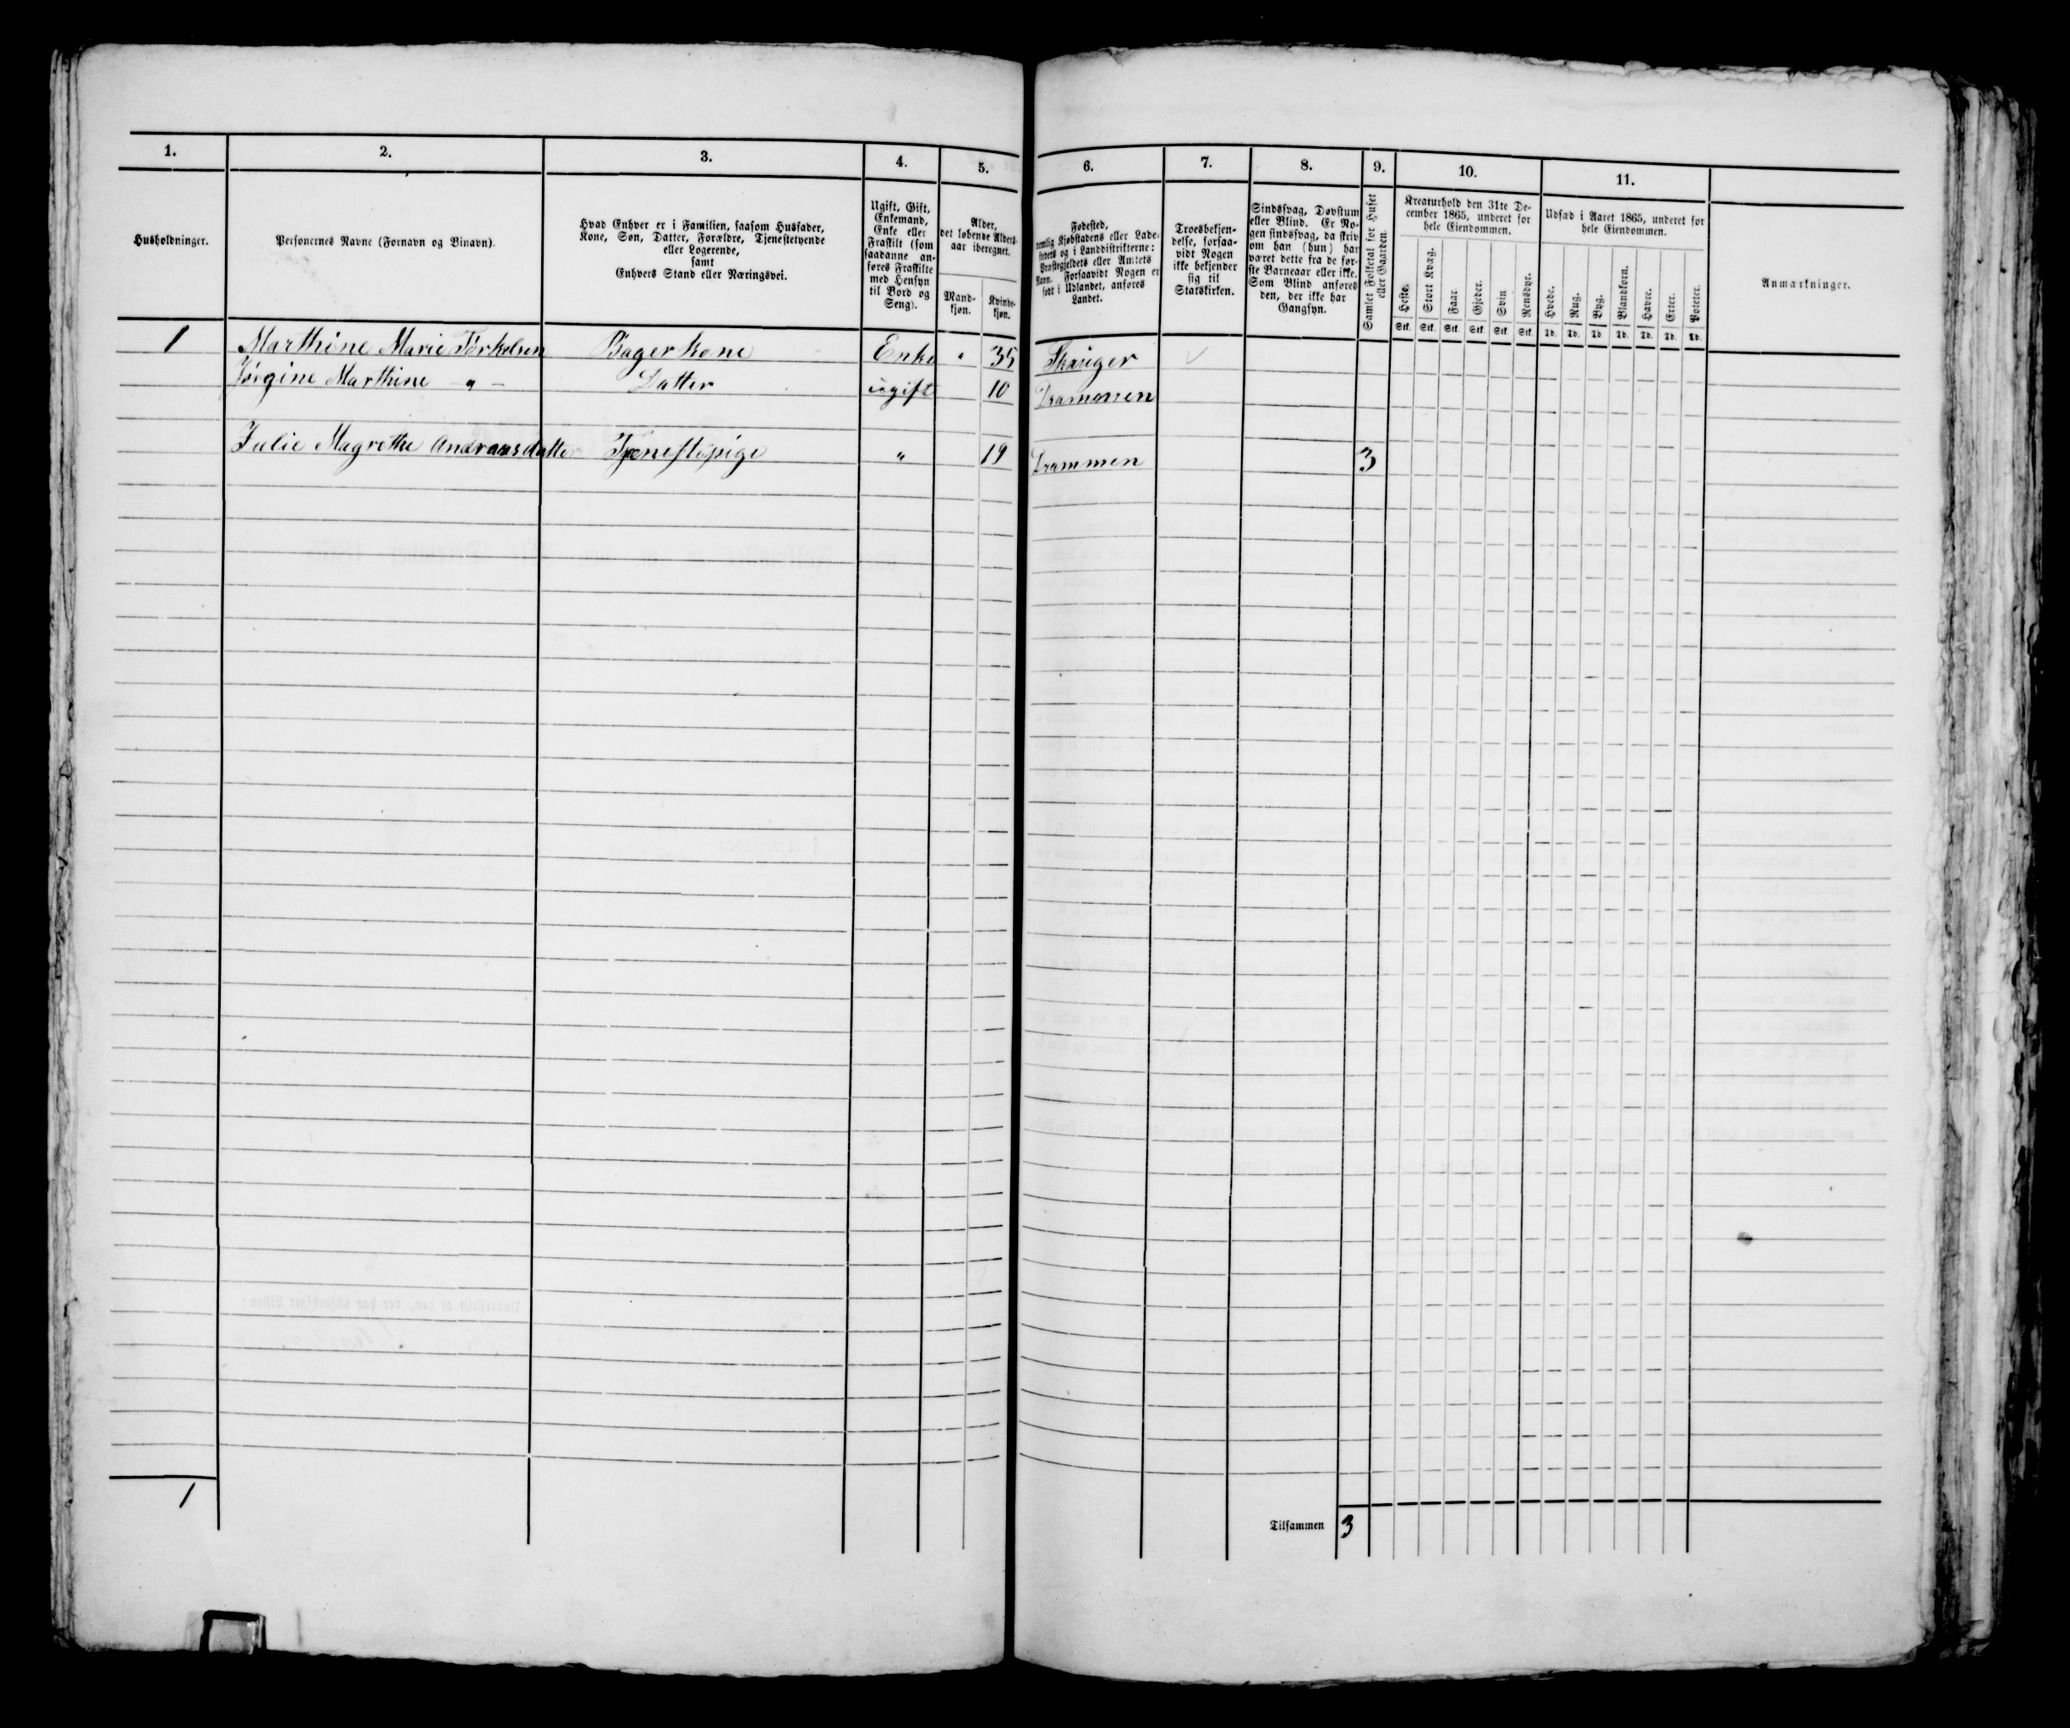 1. 2. 3. 4. 5. 6. 7. 8. 9. 10. 11.
Husholdninger.
Personernes Navne (Fornavn og Binavn).
Hvad Enhver er i Familien, saasom Husfader,
Kone, Søn, Datter, Forældre, Tjenestetyende
eller Logerende,
samt
Enhvers Stand eller Næringsvei.
Ugift, Gift,
Enkemand,
Enke eller
Fraskilt (som
saadanne an-
føres Fraskilte
med Hensyn
til Bord og
Seng).
Alder,
det løbende Alders-
aar iberegnet.
Mand-
kjøn.
Kvinde-
kjøn.
Fødested,
nemlig Kjøbstadens eller Lade-
stedets og i Landdistrikterne:
Præstegjeldets eller Amtets
Navn. Forsaavidt Nogen er
født i Udlandet, anføres
Landet.
Troesbekjen-
delse, forsaa-
vidt Nogen
ikke bekjender
sig til
Statskirken.
Sindssvag, Døvstum
eller Blind. Er No-
gen sindssvag, da skriv
om han (hun) har
været dette fra de før-
ste Barneaar eller ikke.
Som Blind anføres
den, der ikke har
Gangsyn.
Samlet Folketal for Huset
eller Gaarden.
Kreaturhold den 31te De-
cember 1865, underet for
hele Eiendommen.
Heste. Stort Kvæg. Faar. Gjeder. Svin. Rensdyr.
Stk. Stk. Stk. Stk. Stk. Stk.
Udsæd i Aaret 1865, underet for
hele Eiendommen.
Hvede. Rug. Byg. Blandkorn. Havre. Erter. Poteter.
Td. Td. Td. Td. Td. Td. Td.
Anmærkninger.
1 Marthine Marie Törkelsen Bagerkone Enke " 35 Skauger
Jörgine Marthine — " — Datter ugift 10 Drammen
Julie Magrethe Andreasdatter Tjenestepige " 19 Drammen 3
1
Tilsammen 3